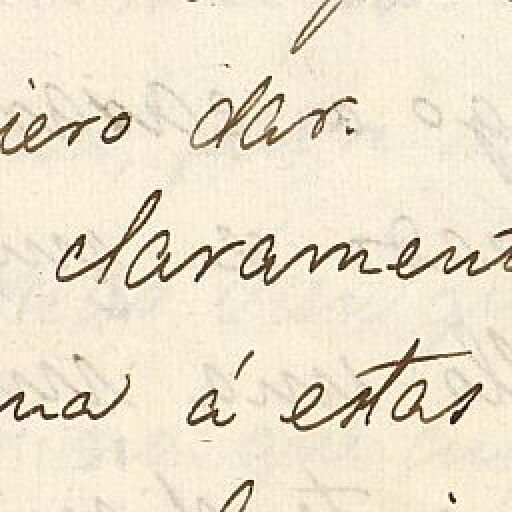 iero dar.
clarament
na á estas